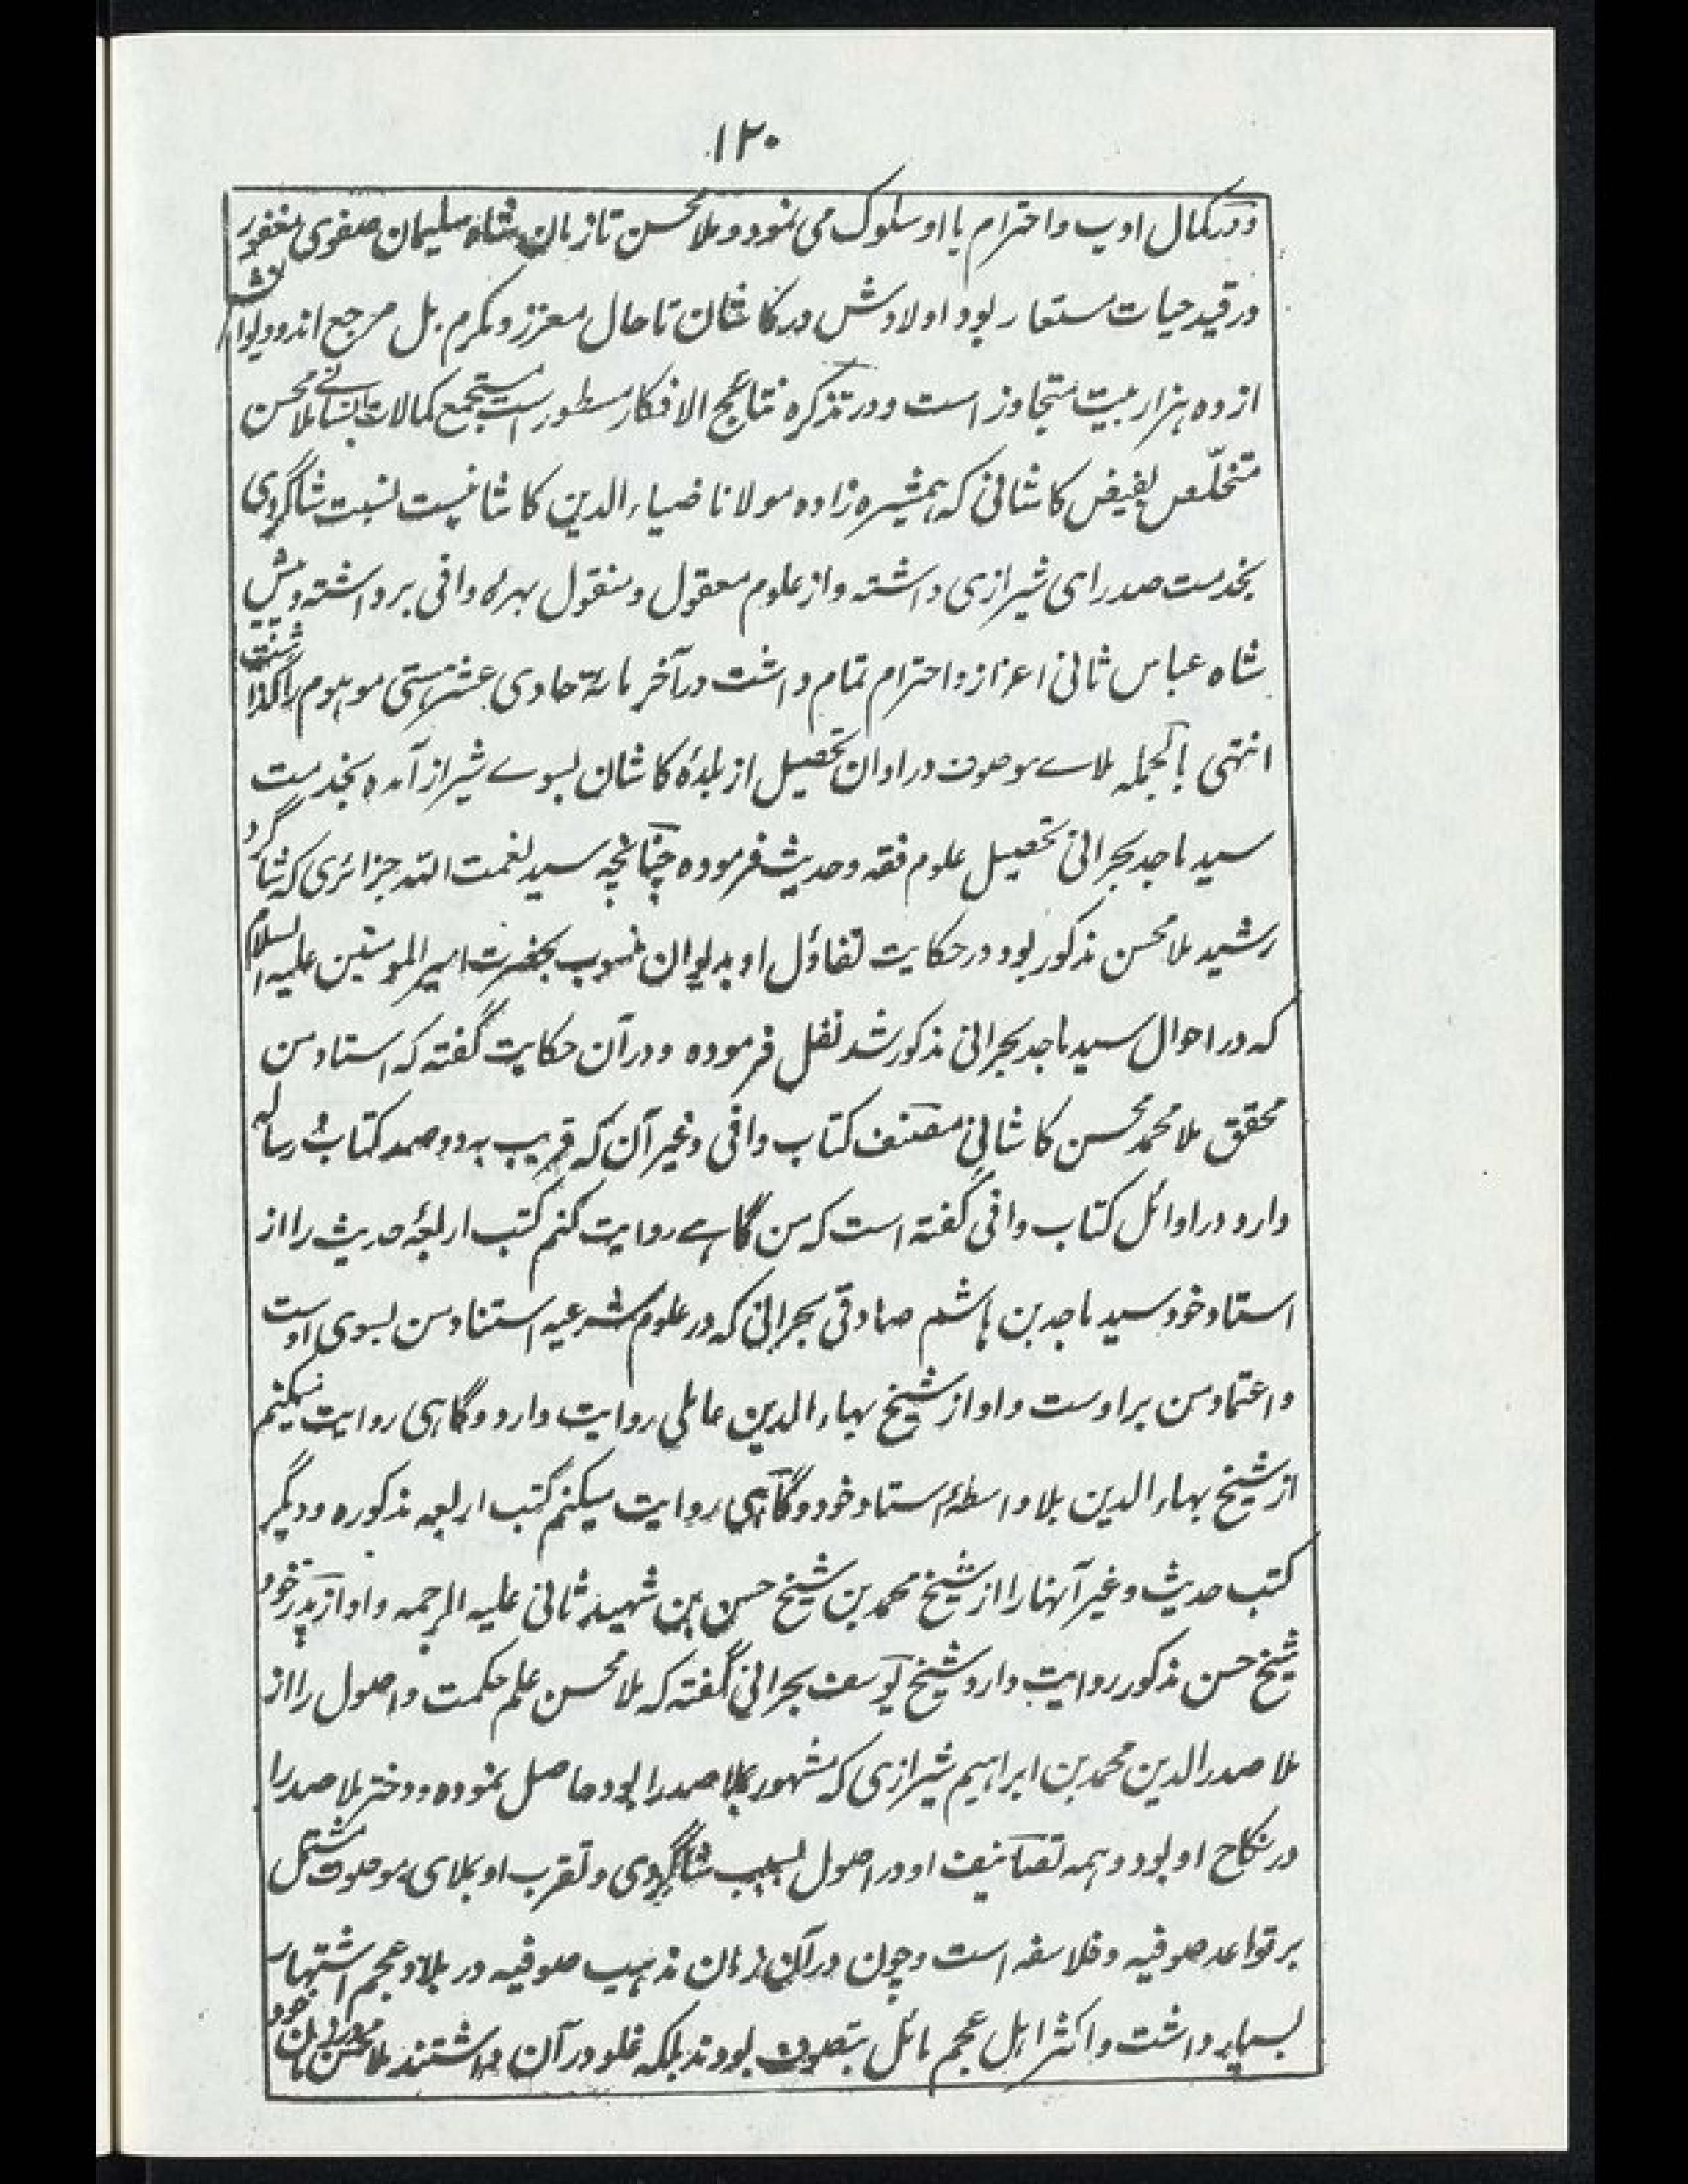 ۱۲۰
ودرکمال ادب واحترام با او سلوک می نمود و ملا محسن تا زمان شاه سلیمان صفوی مغفور
در قید حیات مستعار بود و اولادش در کاشان تا حال معزز و مکرم بل مرجع اند و دیوانش
از ده هزار بیت متجاوز است و در تذکره نتائج الافکار مسطور است مستجمع کمالات انسانی ملا محسن
متخلّص بفیض کاشانی که همشیره زاده مولانا ضیاء الدین کاشانیست نسبت شاگردی
بخدمت صدرای شیرازی داشته و از علوم معقول و منقول بهره وافی برداشته و پیش
شاه عباس ثانی اعزاز و احترام تمام داشت در آخر مائة حادی عشر هستی موهوم را گذاشت
انتهی بالجمله ملاے موصوف در اوان تحصیل از بلدهٔ کاشان بسوے شیراز آمده بخدمت
سید ماجد بحرانی تحصیل علوم فقه و حدیث فرموده چنانچه سید نعمت الله جزائری که شاگرد
رشید ملا محسن مذکور بود در حکایت تفاؤل او بدیوان منسوب بحضرت امیر المومنین علیه السلام
که در احوال سید ماجد بحرانی مذکور شد نقل فرموده و در آن حکایت گفته که استاد من
محقق ملا محمد محسن کاشانی مصنف کتاب وافی و غیر آن که قریب به دو صد کتاب و رساله
دارد در اوائل کتاب وافی گفته است که من گاہے روایت کنم کتب اربعهٔ حدیث را از
استاد خود سید ماجد بن هاشم صادقی بحرانی که در علوم شرعیه استناد من بسوی اوست
و اعتماد من بر اوست و او از شیخ بهاء الدین عاملی روایت دارد و گاهی روایت میکنم
از شیخ بهاء الدین بلا واسطهٔ استاد خود و گاهی روایت میکنم کتب اربعه مذکوره و دیگر
کتب حدیث و غیر آنها را از شیخ محمد بن شیخ حسن بن شهید ثانی علیه الرحمه و او از پدر خود
شیخ حسن مذکور روایت دارد و شیخ یوسف بحرانی گفته که ملا محسن علم حکمت و اصول را از
ملا صدر الدین محمد بن ابراهیم شیرازی که مشهور بملا صدرا بود حاصل نموده و دختر ملا صدرا
در نکاح او بود و همه تصانیف او در اصول بسبب شاگردی و تقرب او بملای موصوف مشتمل
بر قواعد صوفیه و فلاسفه است و چون در آن زمان مذهب صوفیه در بلاد عجم اشتهار
بسیار داشت و اکثر اهل عجم مائل بتصوف بودند بلکه غلو در آن داشتند ملا محسن